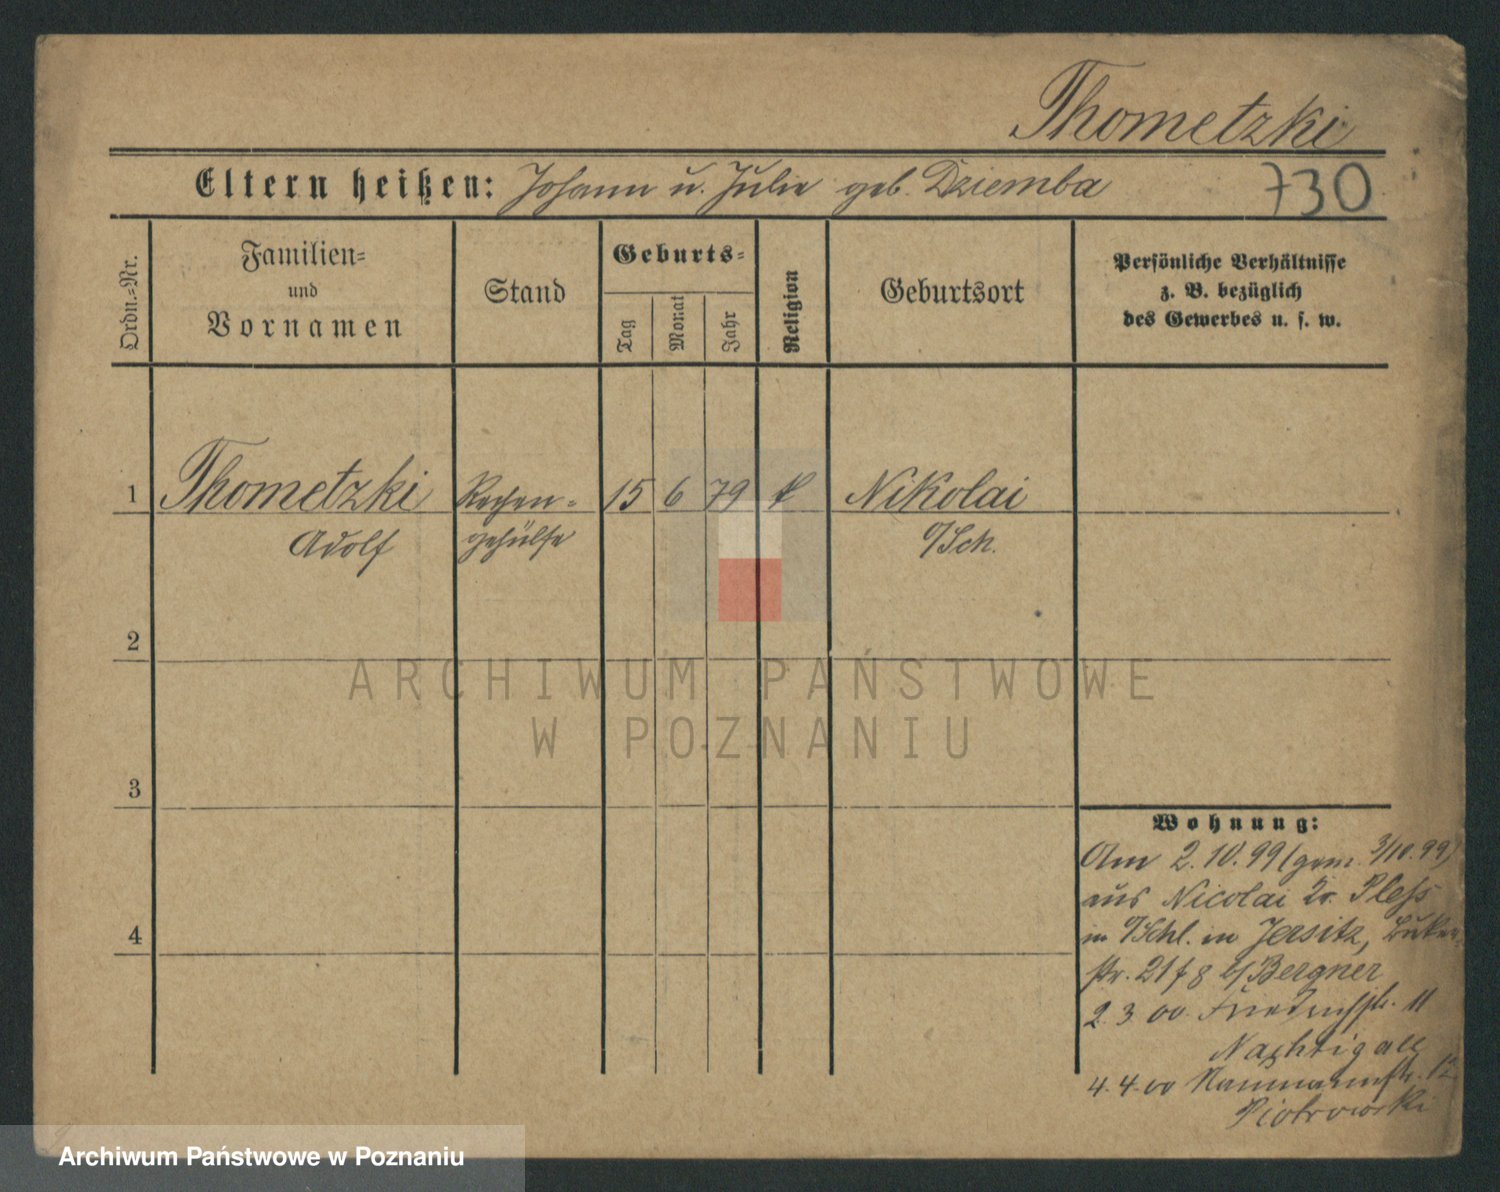 Thometzki
Eltern heißen: Johann u. Julie geb. Dziemba
730
Ordn.-Nr.
Familien-
und
Vornamen
Stand
Geburts-
Tag
Monat
Jahr
Religion
Geburtsort
Persönliche Verhältnisse
z. B. bezüglich
des Gewerbes u. s. w.
1 Thometzki Rechen- 15 6 79 k Nikolai
Adolf gehülfe O/Sch.
2
3
4
ARCHIWUM PAŃSTWOWE
W POZNANIU
Wohnung:
Am 2.10.99 (gem. 3/10.99)
aus Nicolai Kr. Pless
in O/Schl. in Jersitz,
str. 21 b/Bergner
2.3 00 Friedrichstr. 11
Nachtigall
4.4.00 Naumannstr. 12
Piotrowski
Archiwum Państwowe w Poznaniu